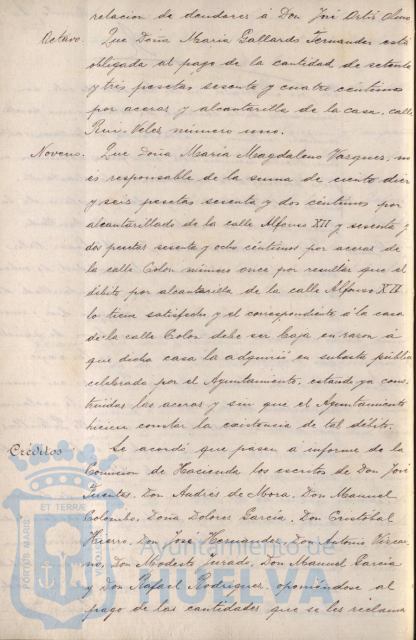 relacion de deudores á Don José Ortiz
Octavo. Que Doña Maria Gallardo Fernandez está
obligada al pago de la cantidad de setenta
y tres pesetas sesenta y cuatro céntimos
por aceras y alcantarilla de la casa, calle
Rui-Velez número uno.
Noveno. Que Doña Maria Magdalena Vazquez, no
es responsable de la suma de ciento diez
y seis pesetas sesenta y dos céntimos por
alcantarillado de la calle Alfonso XII y sesenta y
dos pesetas sesenta y ocho céntimos por aceras de
la calle Colon número once por resultar que el
débito por alcantarilla de la calle Alfonso XII
lo tiene satisfecho y el correspondiente á la casa
de la calle Colon debe ser baja en razon á
que dicha casa la adquirió en subasta pública
celebrada por el Ayuntamiento, estando ya cons-
truidas las aceras y sin que el Ayuntamiento
hiciera constar la existencia de tal débito.
Créditos Se acordó que pasen á informe de la
Comision de Hacienda los escritos de Don José
Fuentes, Don Andrés de Mora, Don Manuel
Colombo, Doña Dolores Garcia, Don Cristóbal
Hierro, Don José Hernandez, Don Antonio Vizcai-
no, Don Modesto Jurado, Don Manuel Garcia
y Don Rafael Rodriguez, oponiéndose al
pago de las cantidades que se les reclama
ET TERRÆ
PORTUS MARIS
CUSTODIA
Ayuntamiento de
HUELVA